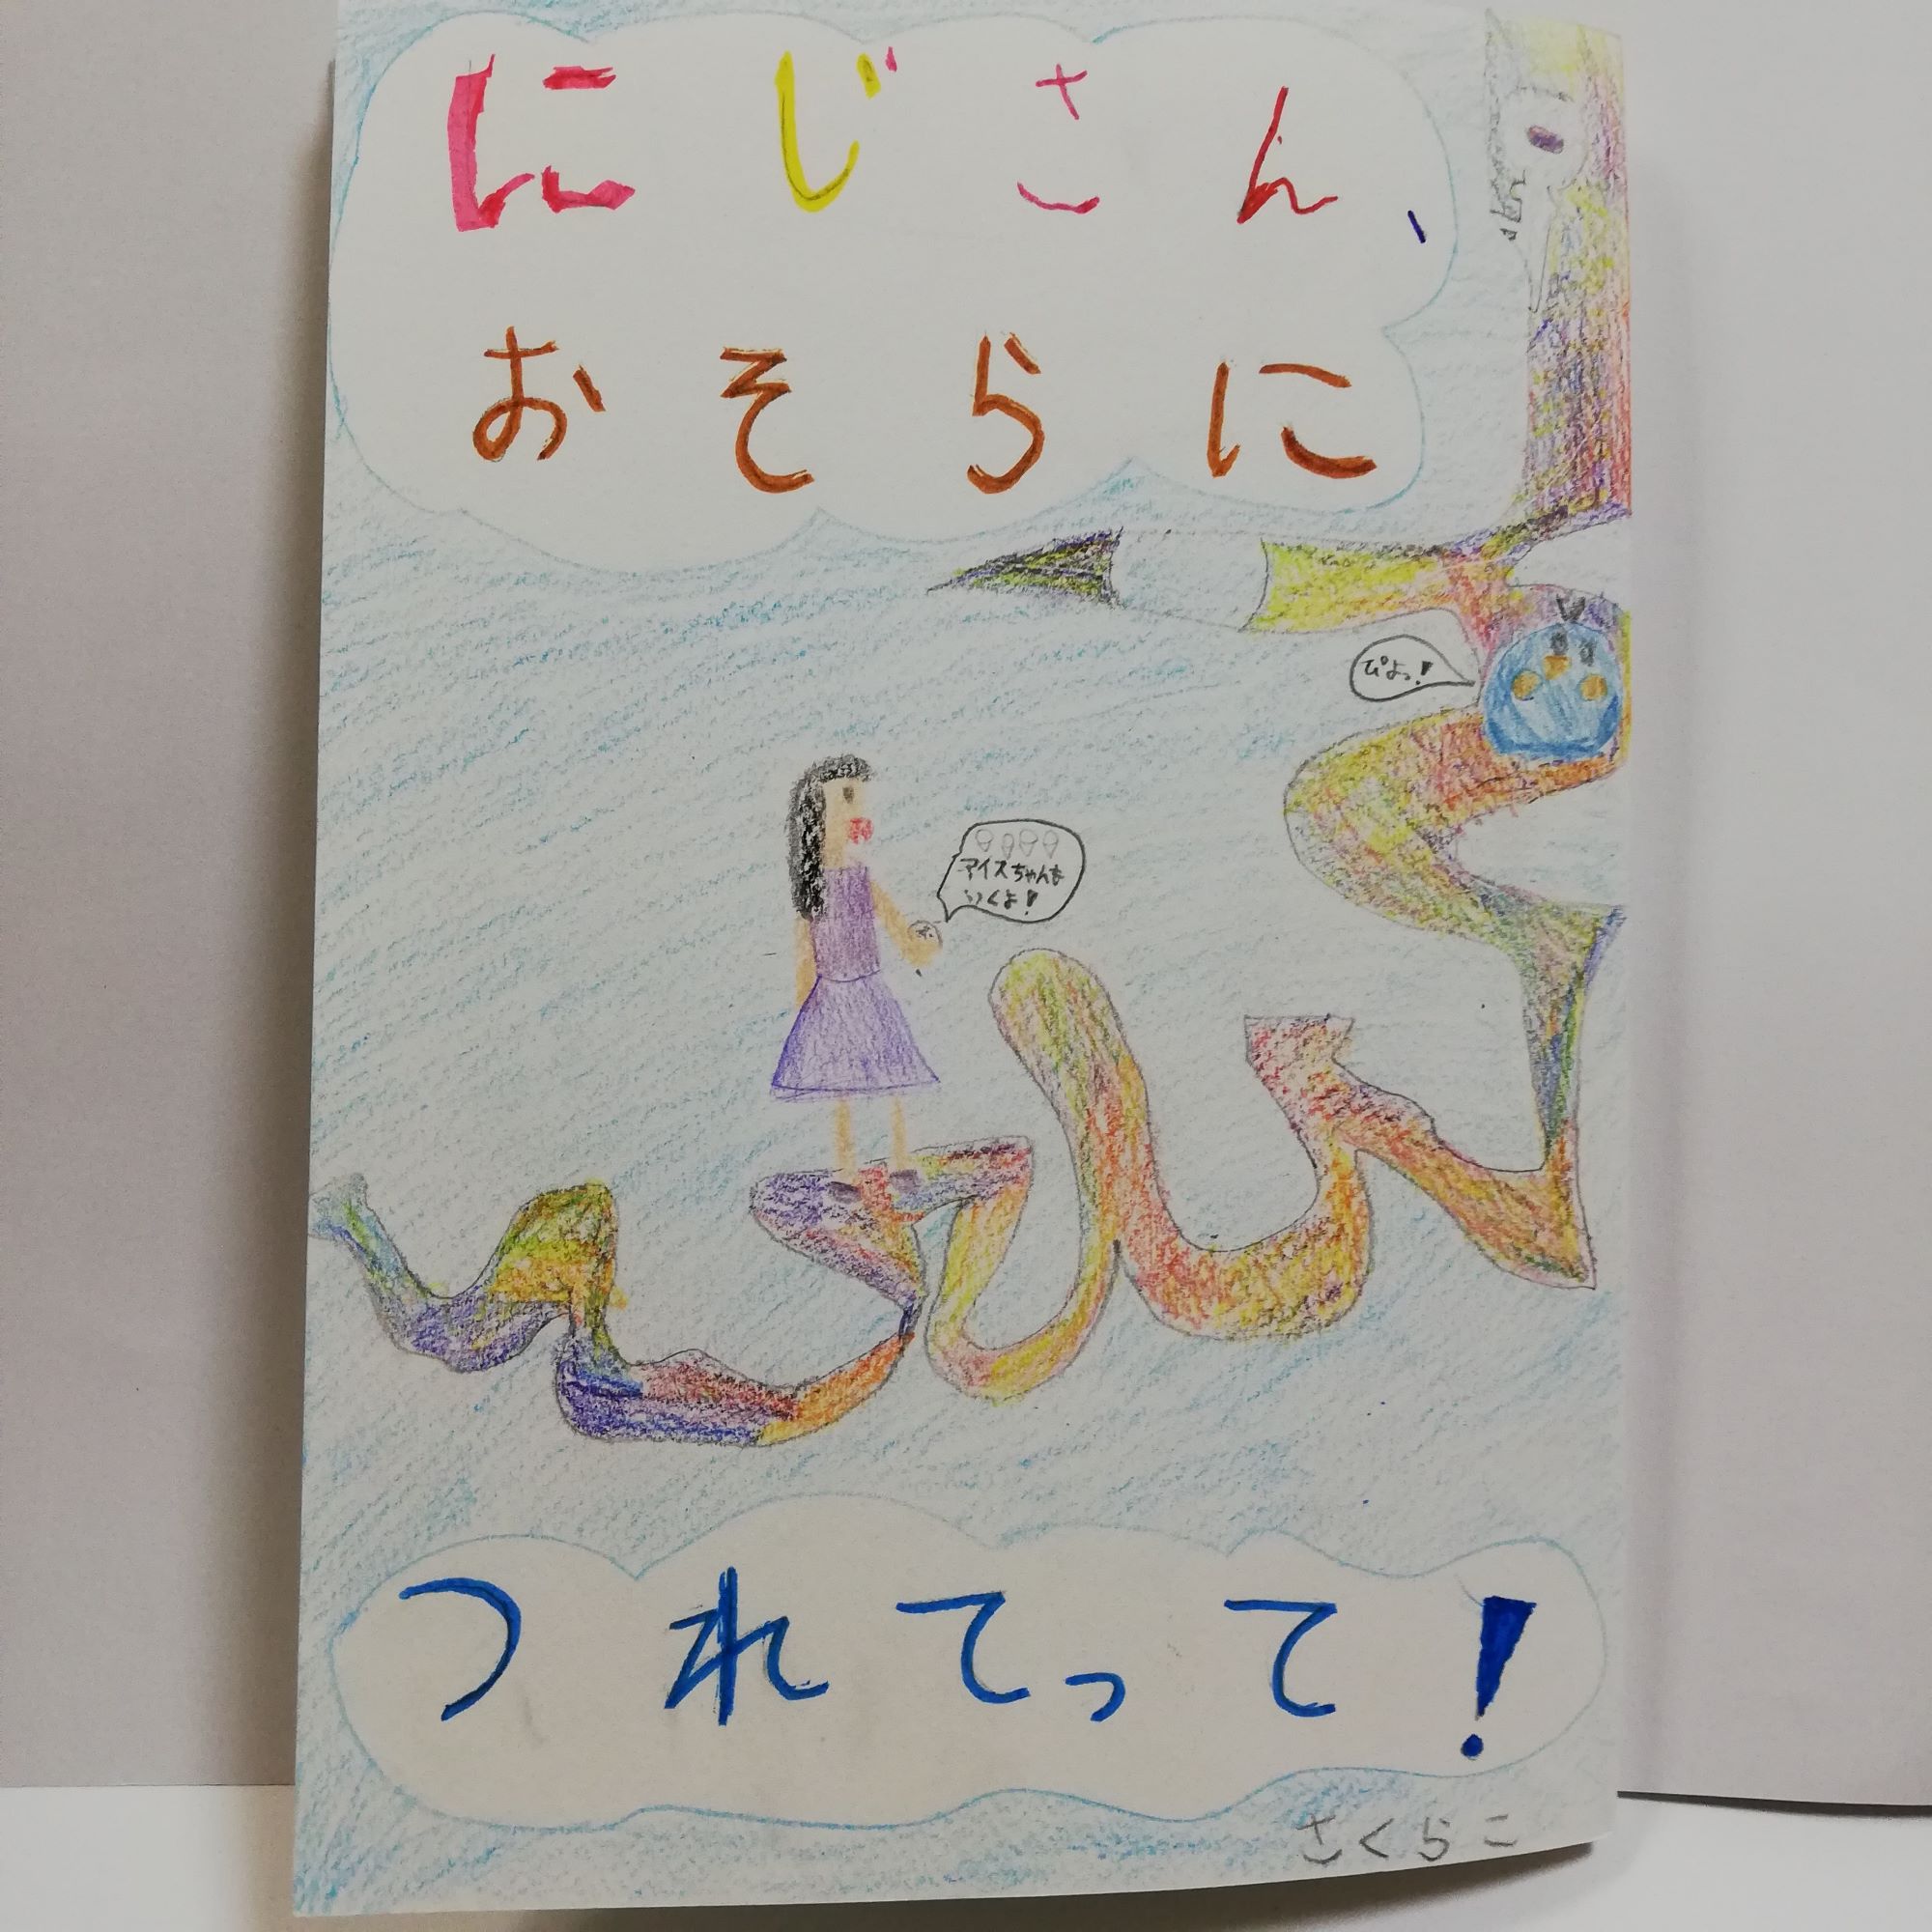 にじさん、
おそらに
ぴよっ!
アイスちゃんも
いくよ!
つれてって!
さくらこ